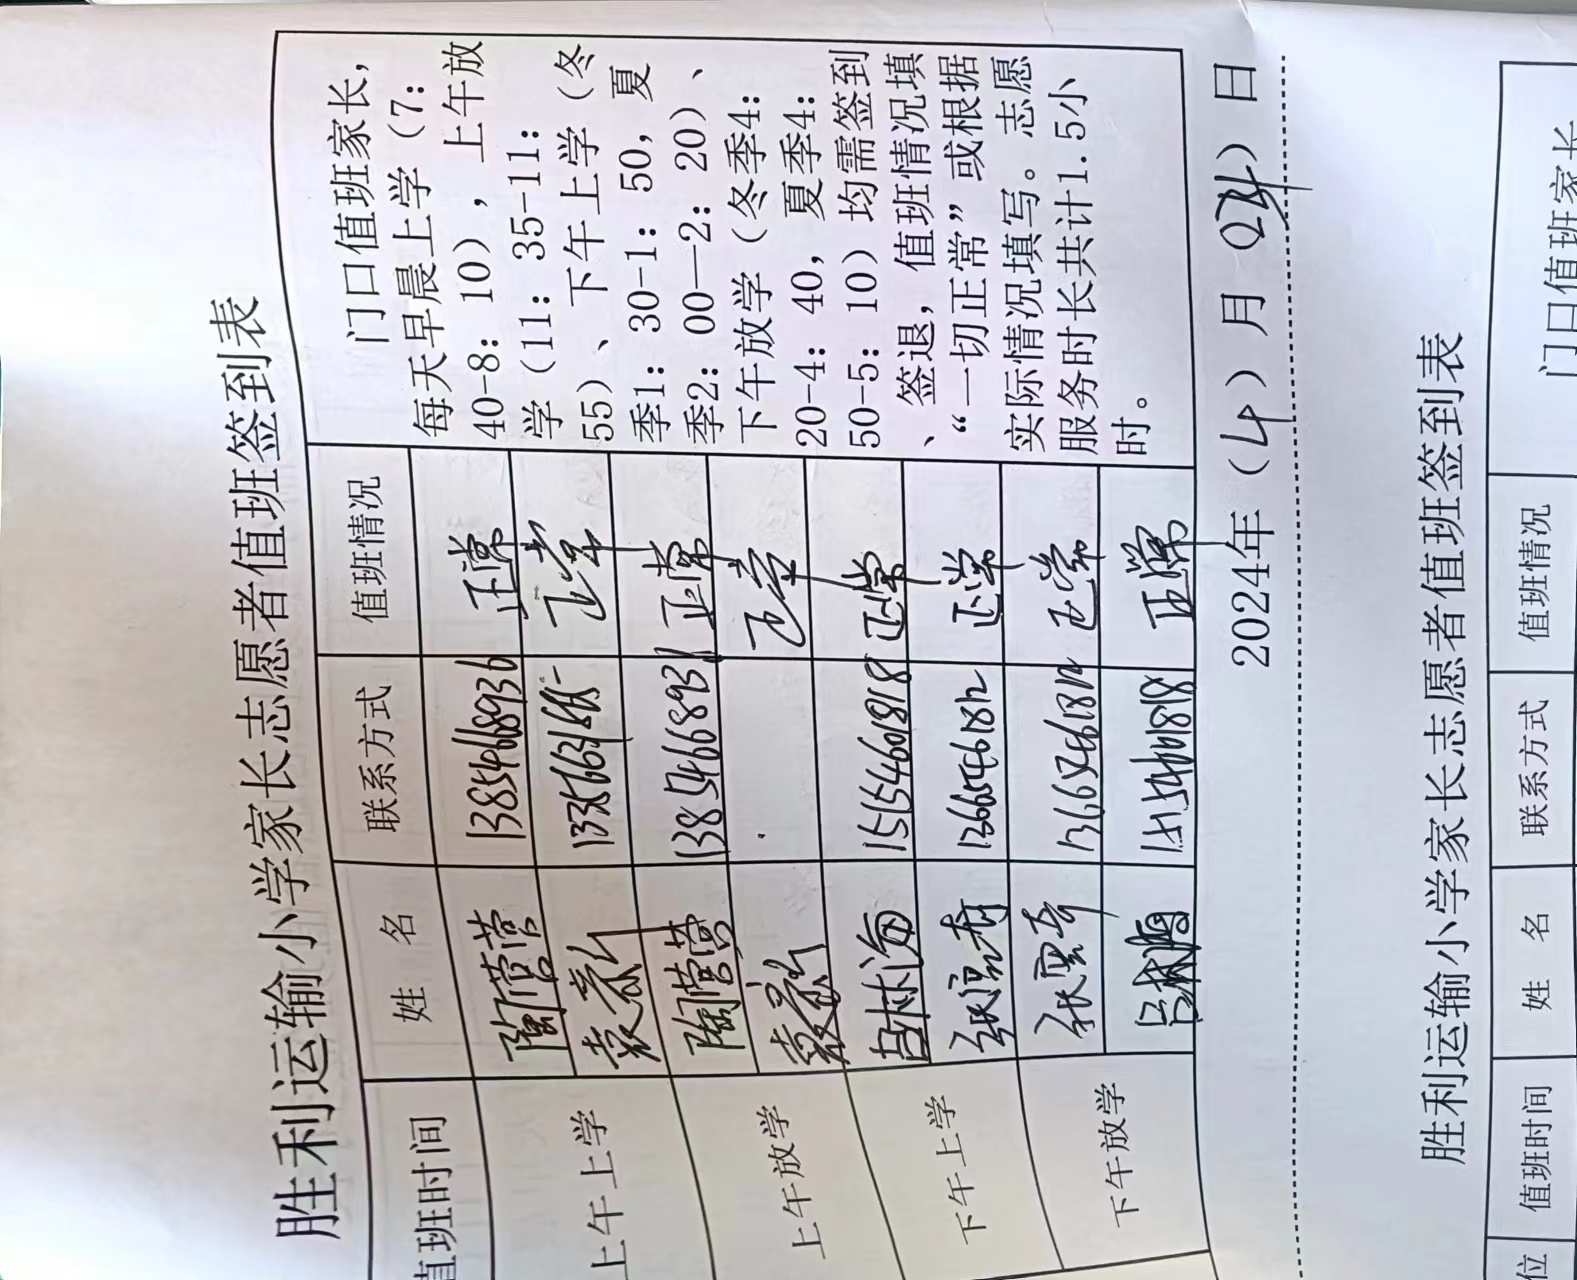 胜利运输小学家长志愿者值班签到表
值班时间 姓 名 联系方式 值班情况
上午上学 陶营营 13854668936 正常
袁新 正常
上午放学 陶营营 1385466893 正常
袁新 正常
下午上学 吕林海 15154601818 正常
张原奇 13665461812 正常
下午放学 张原奇 13665461812 正常
吕林海 15154601818 正常
门口值班家长,
每天早晨上学(7:
40-8: 10), 上午放
学(11: 35-11:
55)、下午上学(冬
季1: 30-1: 50, 夏
季2: 00—2: 20)、
下午放学(冬季4:
20-4: 40, 夏季4:
50-5: 10)均需签到
、签退, 值班情况填
“一切正常”或根据
实际情况填写。志愿
服务时长共计1.5小
时。
2024年(4)月(24)日
胜利运输小学家长志愿者值班签到表
位 值班时间 姓 名 联系方式 值班情况
门口值班家长